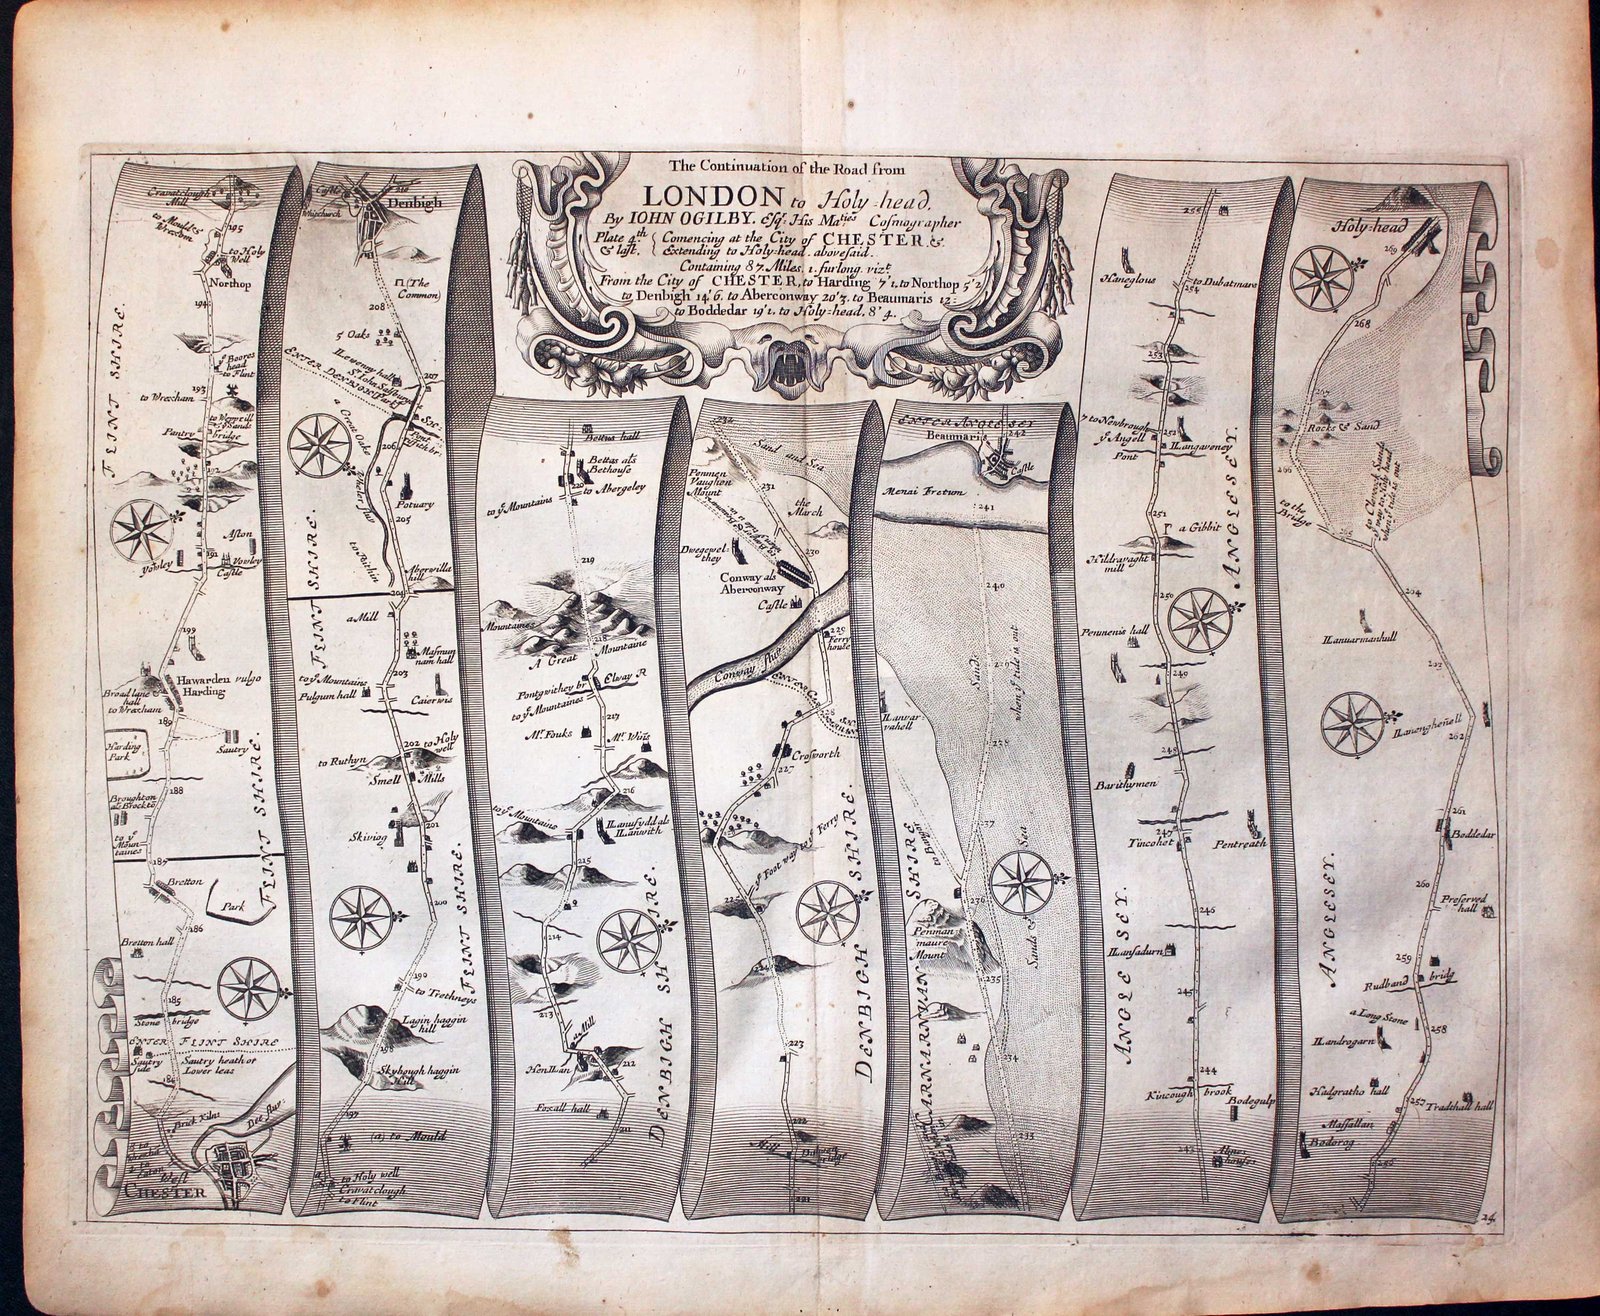 The Continuation of the Road from
LONDON to Holy-head.
By IOHN OGILBY. Esqr. His Maties Cosmographer
Plate 4th & last. { Comencing at the City of CHESTER. &
Extending to Holy-head. abovesaid.
Containing 87 Miles. 1. furlong. vizt.
From the City of CHESTER, to Harding 7'1. to Northop 5'2
to Denbigh 14'6. to Aberconway 20'3. to Beaumaris 12:
to Boddedar 19'1. to Holy-head. 8'4.
Cravatclough
Mill
to Mould &
Wrexham
195
to Holy
Well
Northop
194
FLINT SHIRE.
ye Boores
head
to Flint
193
to Wrexham
Pantry bridge
192
Aston
191
Yowley
Yowley
Castle
199
Hawarden vulgo
Harding
Broad lane
hall
to Wrexham
189
Harding
Park
Sautry
188
Broughton
als Brockto
to ye
Moun-
taines
FLINT SHIRE.
187
Bretton
Park
186
Bretton hall
185
Stone bridge
ENTER FLINT SHIRE
Sautry
side
Sautry heath or
Lower leas
184
Brick Kilns
Dee fluv.
CHESTER
Castle
Whitchurch
Denbigh
(The
Common)
208
5 Oaks
207
ENTER DENBIGH
a Great Oake
206
Potuary
205
to Ruthin
FLINT SHIRE.
Aberwilla
hill
204
a Mill
to ye Mountains
203
Pulgum hall
Caierwis
202
to Holy
well
to Ruthyn
Smell Mills
201
Skiviog
200
FLINT SHIRE.
190
to Trethneys
Lagin haggin
hill
198
Skybough haggin
Hill
197
(a) to Mould
to Holy well
Cravatclough
to Flint
Bettus hall
Bettas als
Bethouse
220
to Abergeley
to ye Mountains
219
Mountaines
218
A Great Mountaine
Pontgwithey br
Elway R
to ye Mountaines
217
Mr. Fouks
Mr. Wins
216
to ye Mountains
Llanufydd als
Llanwith
215
214
DENBIGH SHIRE.
213
a Mill
Henllan
212
Foxall hall
211
232
Sand and Sea
Penmen
Vaughon
Mount
231
the
March
Dwegewel-
they
230
Conway als
Aberconway
Castle
229
Ferry
house
Conway fluv
228
Crosworth
227
ye Foot way to ye Ferry
225
224
DENBIGH SHIRE.
223
222
Mill
221
ENTER ANGLESEY
Beaumaris
242
Castle
Menai Fretum
241
240
Sands
when ye tide is out
239
Llanvar-
vahell
238
237
to Bangor
Sands & Sea
236
Penman
maure
Mount
235
CARNARVAN SHIRE
234
233
255
Haneglous
to Dubatmare
254
253
to Newbrough
ye Angell
252
Llangaveney
Pont
251
a Gibbit
Hildravaght
mill
250
ANGLESEY.
Penmenis hall
249
248
Barithymen
247
Tincohet
Pentreath
246
Llansadurn
245
ANGLESEY.
244
Kincough brook
Bodegulp
243
Almes
houses
Holy-head
269
268
267
Rocks & Sand
266
to the
Bridge
265
264
Llanuarmanhull
263
Llanenghenell
262
261
Boddedar
260
Preserved
hall
ANGLESEY.
259
Rudband bridg
a Long Stone
258
Llandrogarn
Hadgratho hall
257
Tradthall hall
Massallan
Bodorog
256
24.